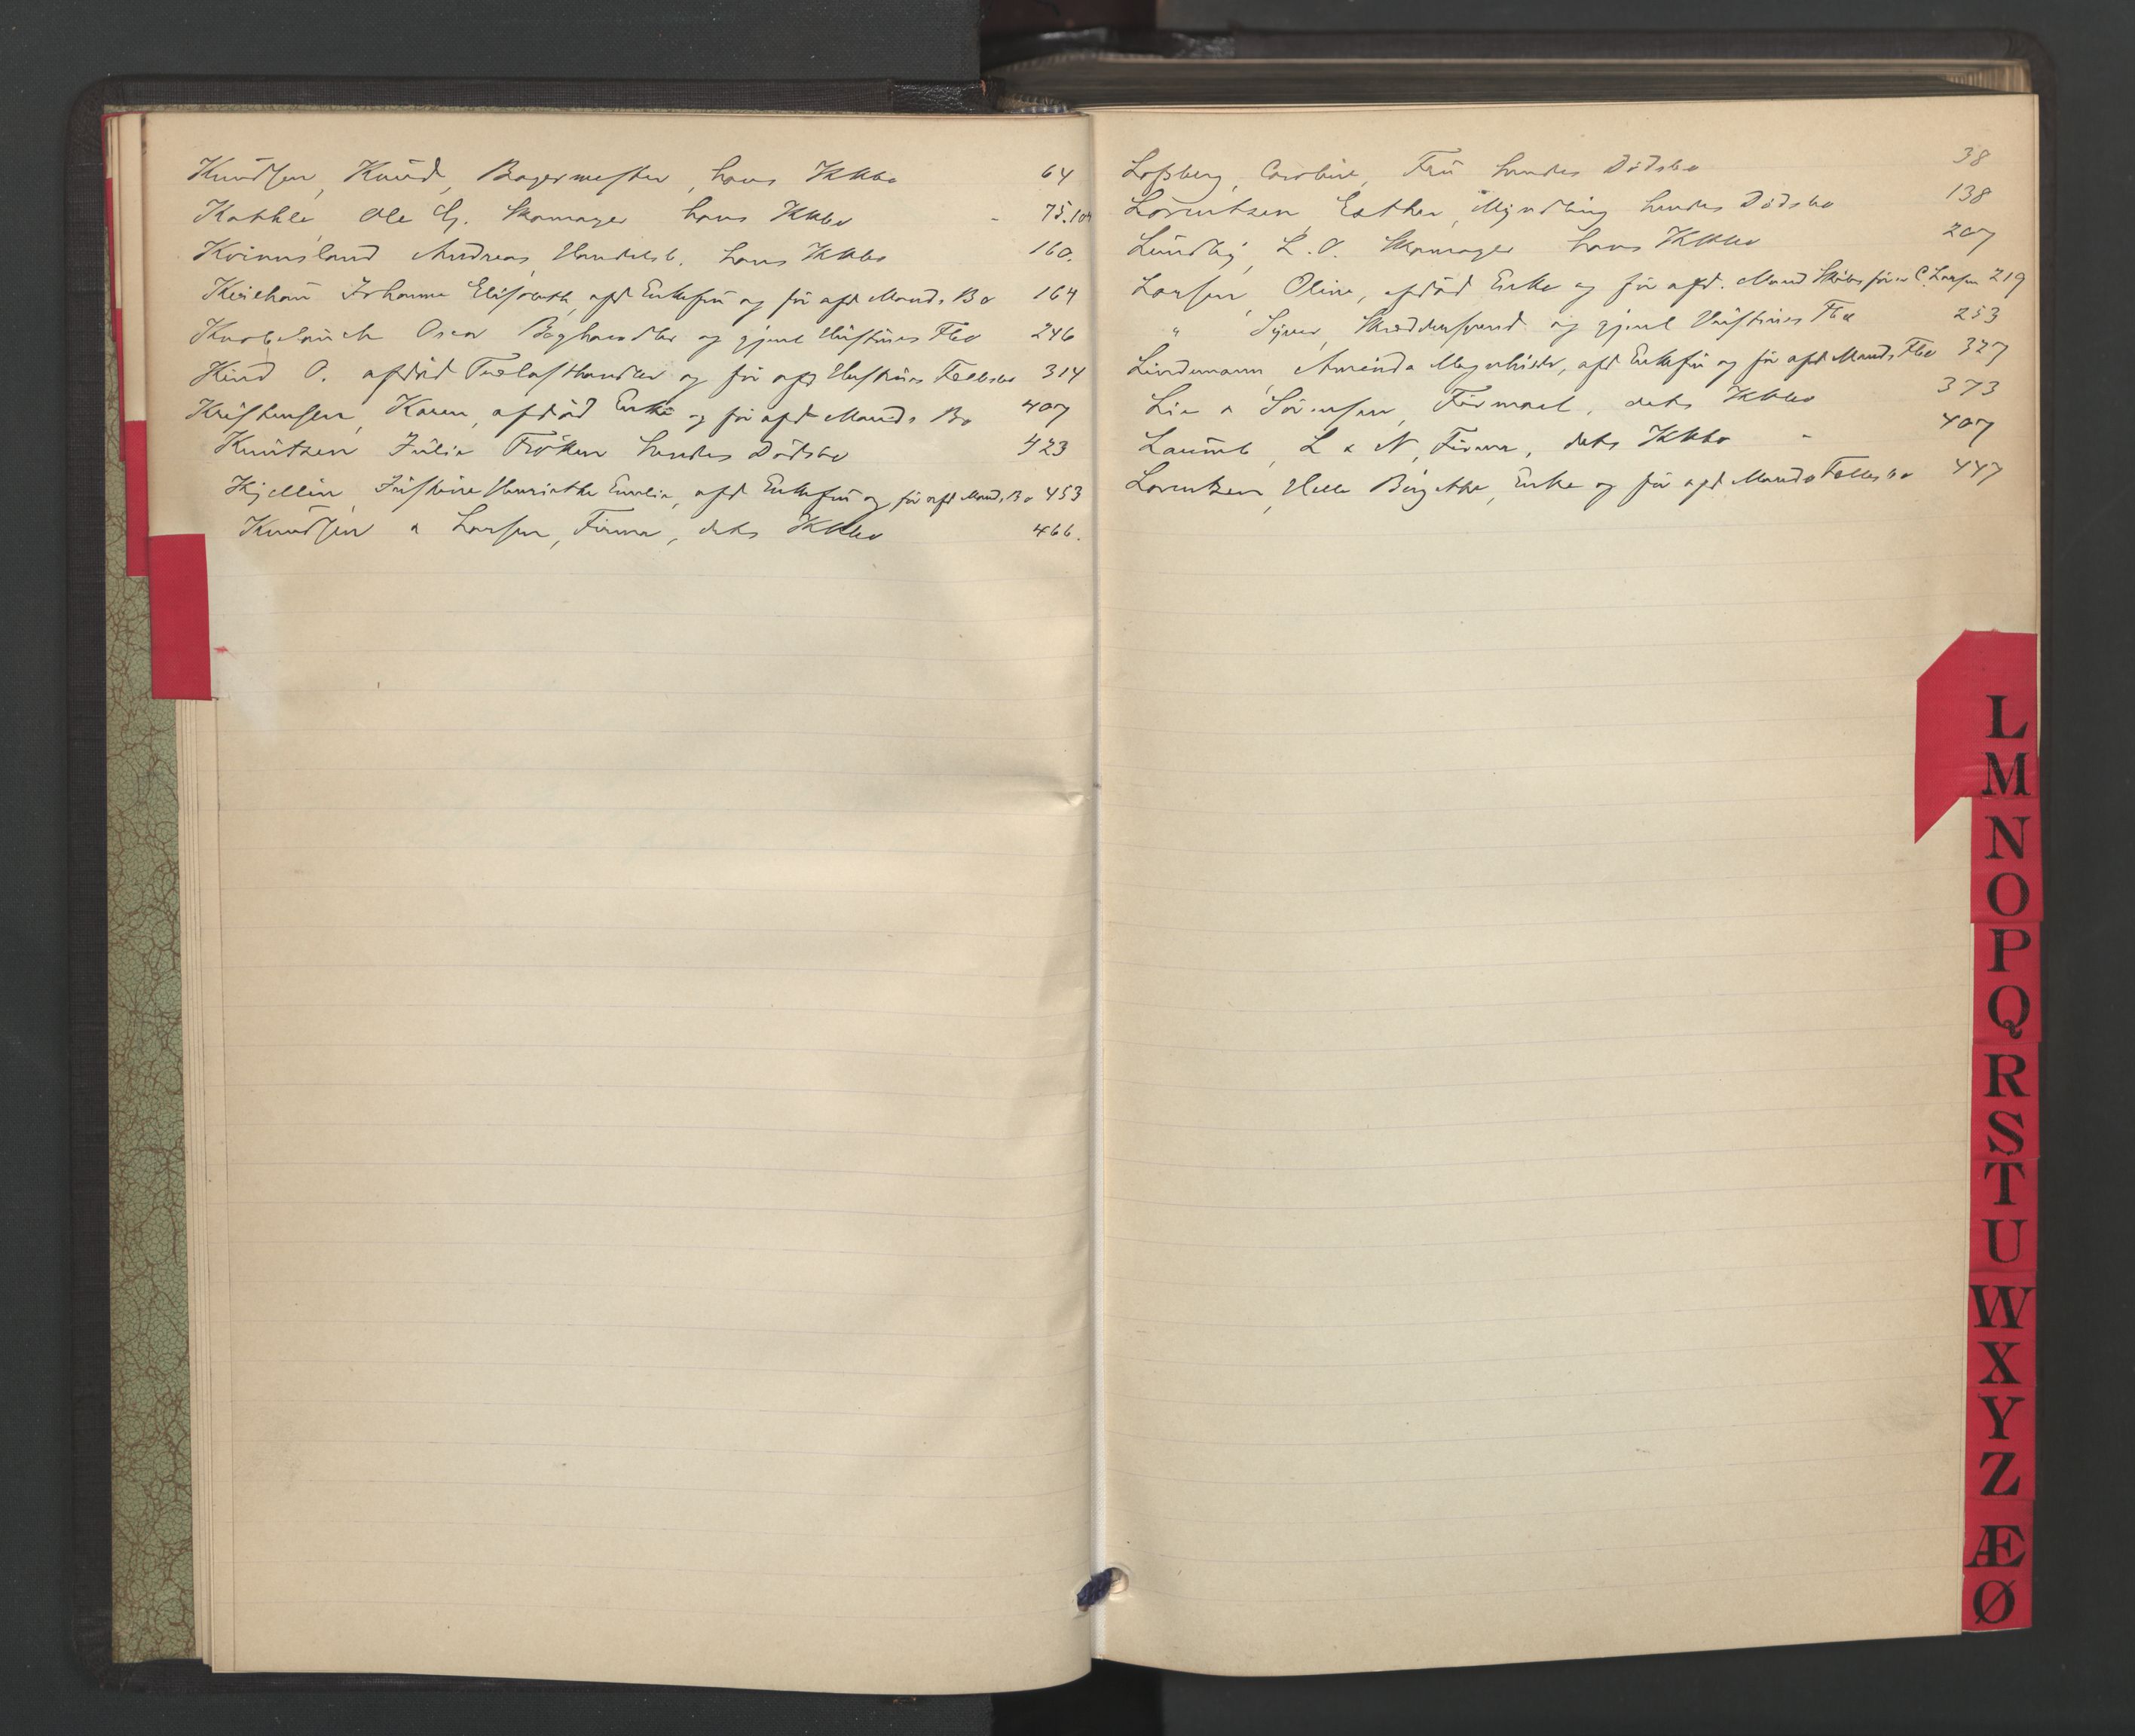 Knudsen, Knud, Bagermester, hans KKbo 64
Kathle, Ole G. Skomager hans KKbo - 75.104
Kvinnsland Andreas Handelsb. hans KKbo 160.
Johanne Elisabeth, afd Enkefru og før afd Mands Bo 164
Knobelauch Oscar Boghandler og gjenl Hustrues Fbo 246
Kind O. afdød Trælasthandler og før afd Hustrues Fællesbo 314
Kristensen, Karen, afdød Enke og før afd Mands Bo 407
Knutzen Julie Frøken hendes Dødsbo 423
Kjellin, Justine Henriette Emilie, afd Enkefru og før afd Mands Bo 453
Knudsen & Larsen, Firma, dets KKbo 466.
Lossberg, Caroline, Fru hendes Dødsbo 38
Lorentzen, Esther, Myndling hendes Dødsbo 138
Lundby, L. O. Skomager hans KKbo 207
Larsen, Oline, afdød Enke og før afd. Mand C. Larsen 219
" Syver, Skræddersvend og gjenl Hustrues Fbo 253
Lindemann Aminda, afd Enkefru og før afd Mands Fbo 327
Lie & Sørensen, Firmaet, dets KKbo 373
Laumb, L & N, Firma, dets KKbo - 407
Lorentzen, Helle Birgitte, Enke og før afd Mands Fællesbo 447
L
M
N
O
P
Q
R
S
T
U
W
X
Y
Z
Æ
Ø